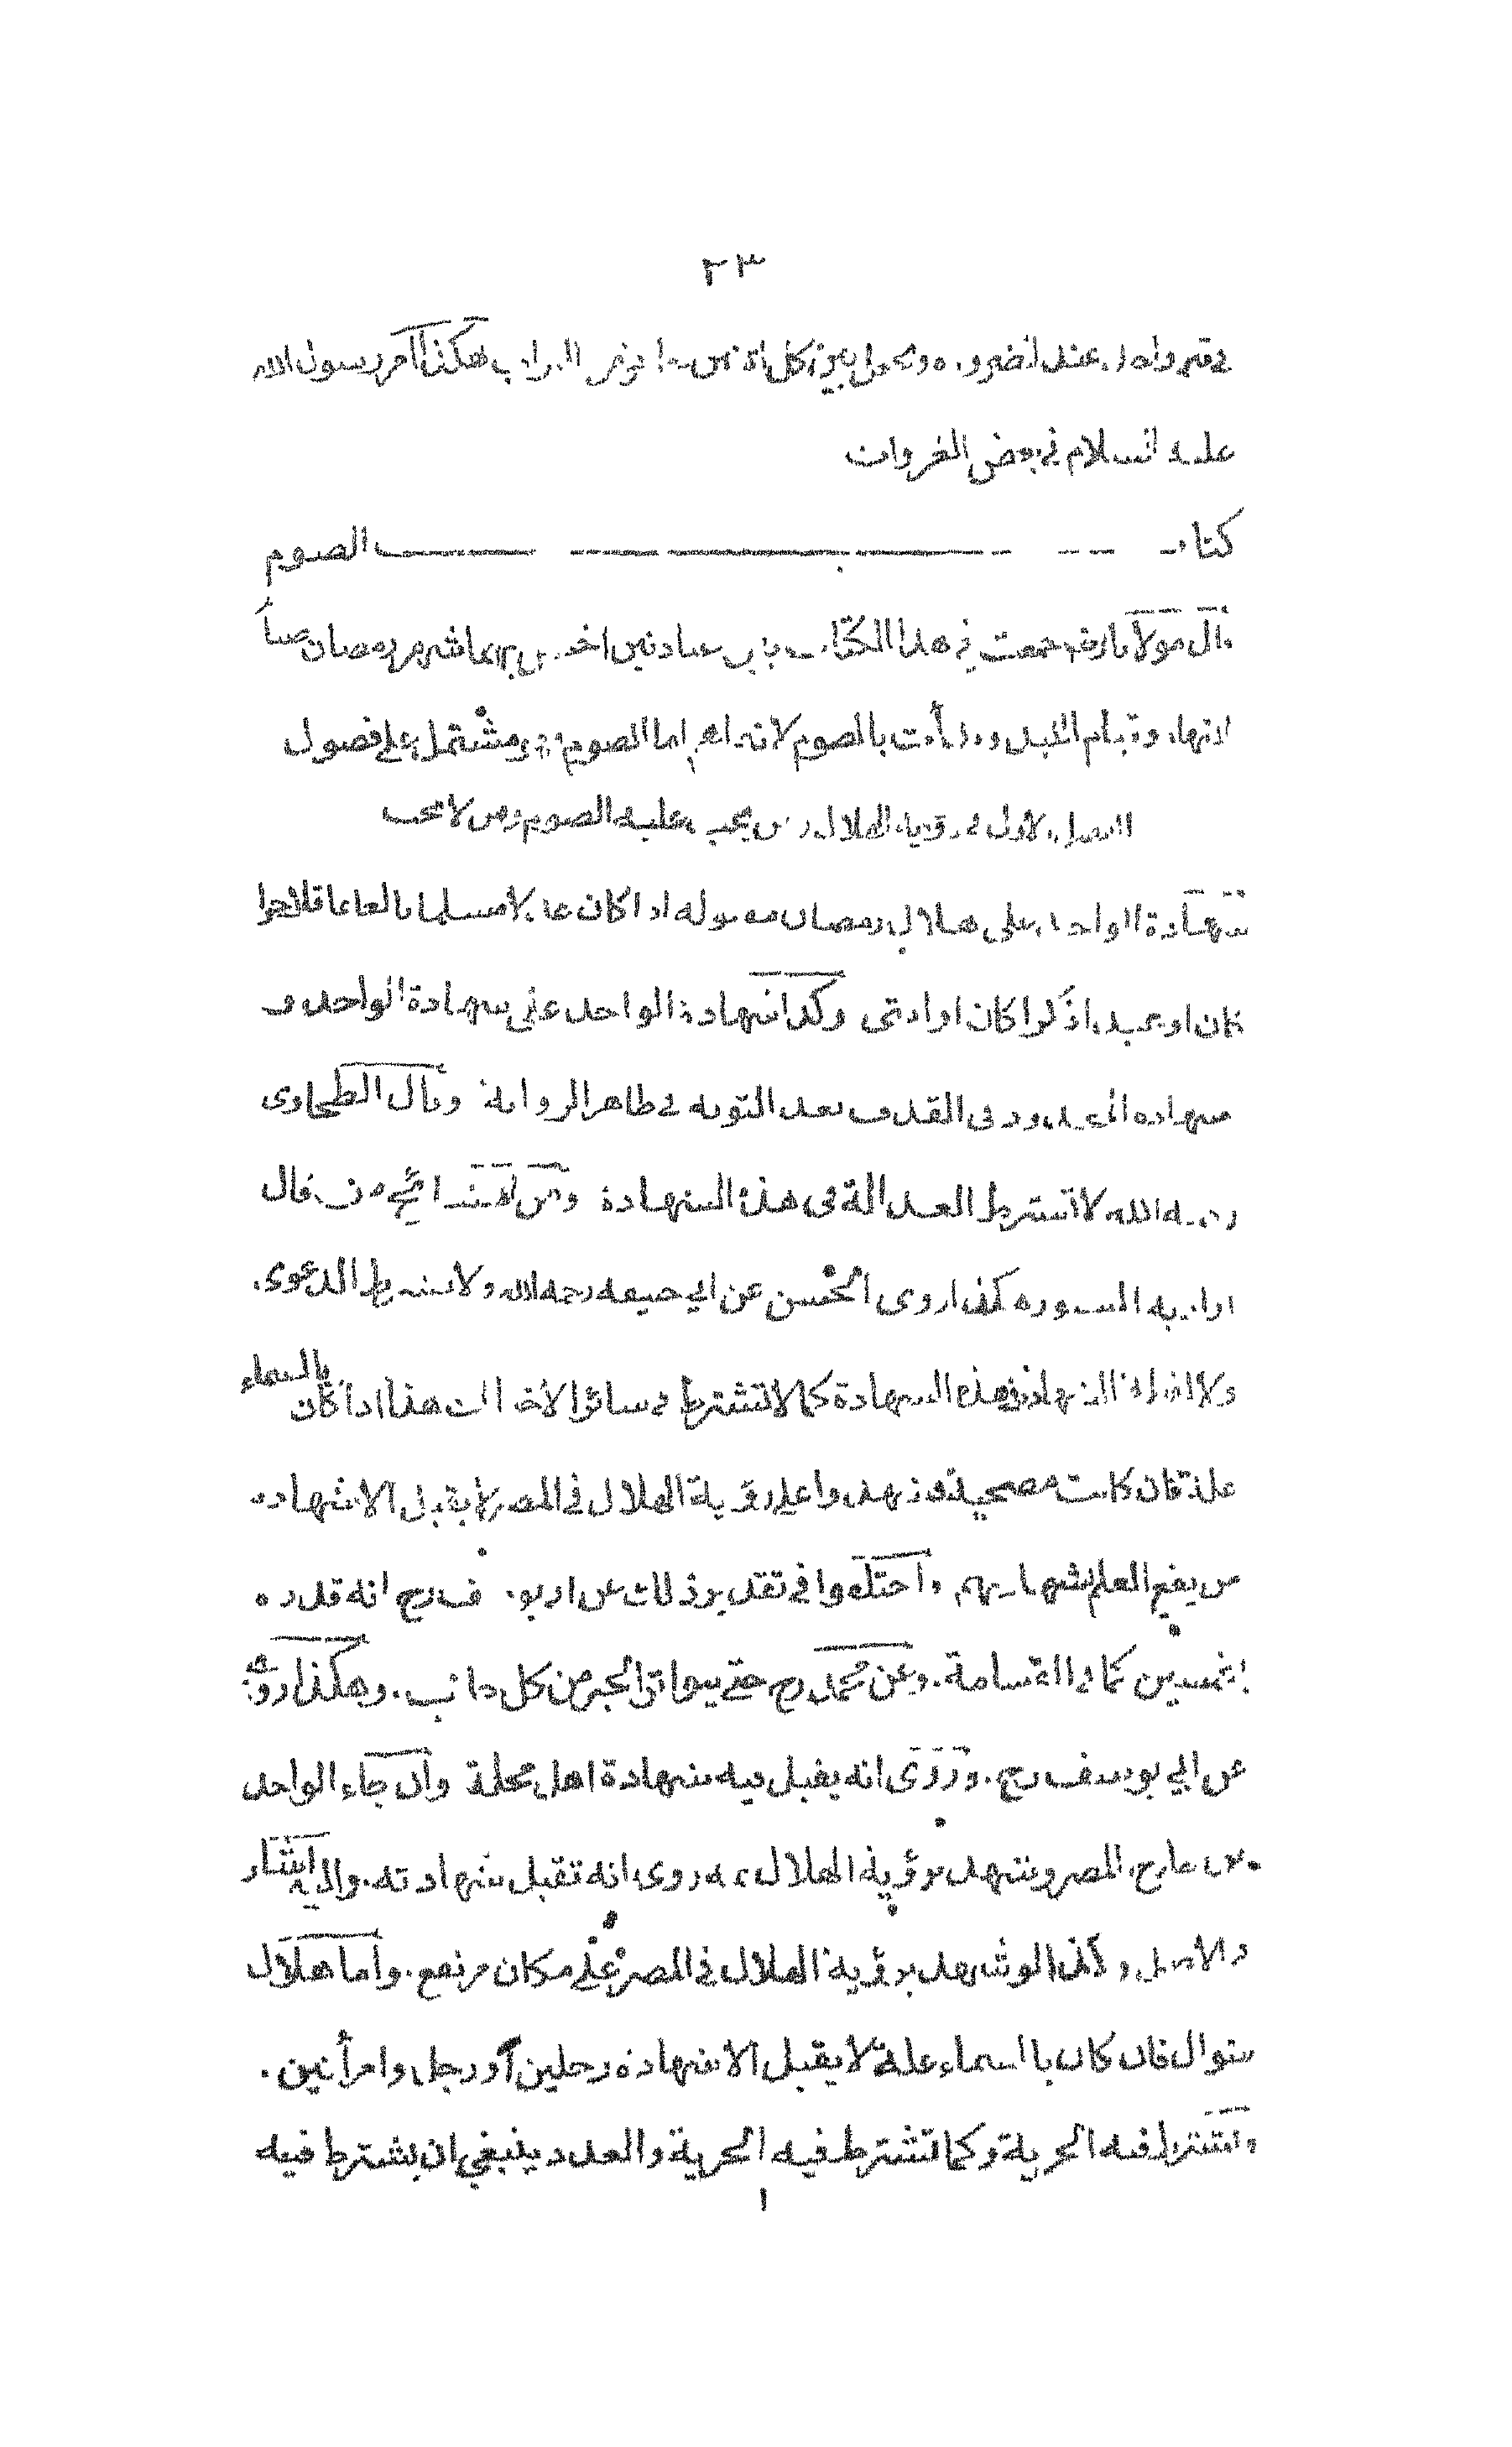 ٢٣
في قبر واحد عند الضرورة ويجعل بين كل اثنين من التراب هكذا امر رسول الله
عليه السلام في بعض الغزوات
كتاب الصوم
قال مولانا رضه جمعت في هذا الكتاب بين عبادتين بهما شهر رمضان صيام
النهار وقيام الليل وبدأت بالصوم لانه اهم اما الصوم فمشتمل على فصول
الفصل الاول في رؤية الهلال ومن يجب عليه الصوم ومن لا يجب
شهادة الواحد على هلال رمضان مقبولة اذا كان عدلا مسلما بالغا عاقلا حرا
كان او عبدا ذكرا كان او انثى وكذا شهادة الواحد على شهادة الواحد و
شهادة المحدود في القذف بعد التوبة في ظاهر الرواية وقال الطحاوي
رحمه الله لا تشترط العدالة في هذه الشهادة ومن قال
اراد به المستور هكذا روى الحسن عن ابي حنيفه رحمه الله ولا يشترط الدعوى.
ولا الشهادة في هذه الشهادة كما لا تشترط في سائر الاخبارات هذا اذا كان بالسماء
علة فان كانت مصحية وشهدوا على رؤية الهلال في المصر لا يقبل الا شهادة
من يقع العلم بشهادتهم واختلفوا في تقدير ذلك عن ابي يوسف رح انه قدره
بخمسين كما في القسامة. وعن محمد رح حتى يتواتر الخبر من كل جانب. وهكذا روي
عن ابي يوسف رح. وروى انه يقبل فيه شهادة اهل محلة وان جاء الواحد
من خارج المصر وشهد برؤية الهلال ثمه روى انه تقبل شهادته. واليه اشار
في الاصل وكذا لو شهد برؤية الهلال في المصر على مكان مرتفع. واما هلال
شوال فان كان بالسماء علة لا يقبل الا شهادة رجلين او رجل وامرأتين.
وتشترط فيه الحرية وكما تشترط فيه الحرية والعدد ينبغي ان يشترط فيه
١